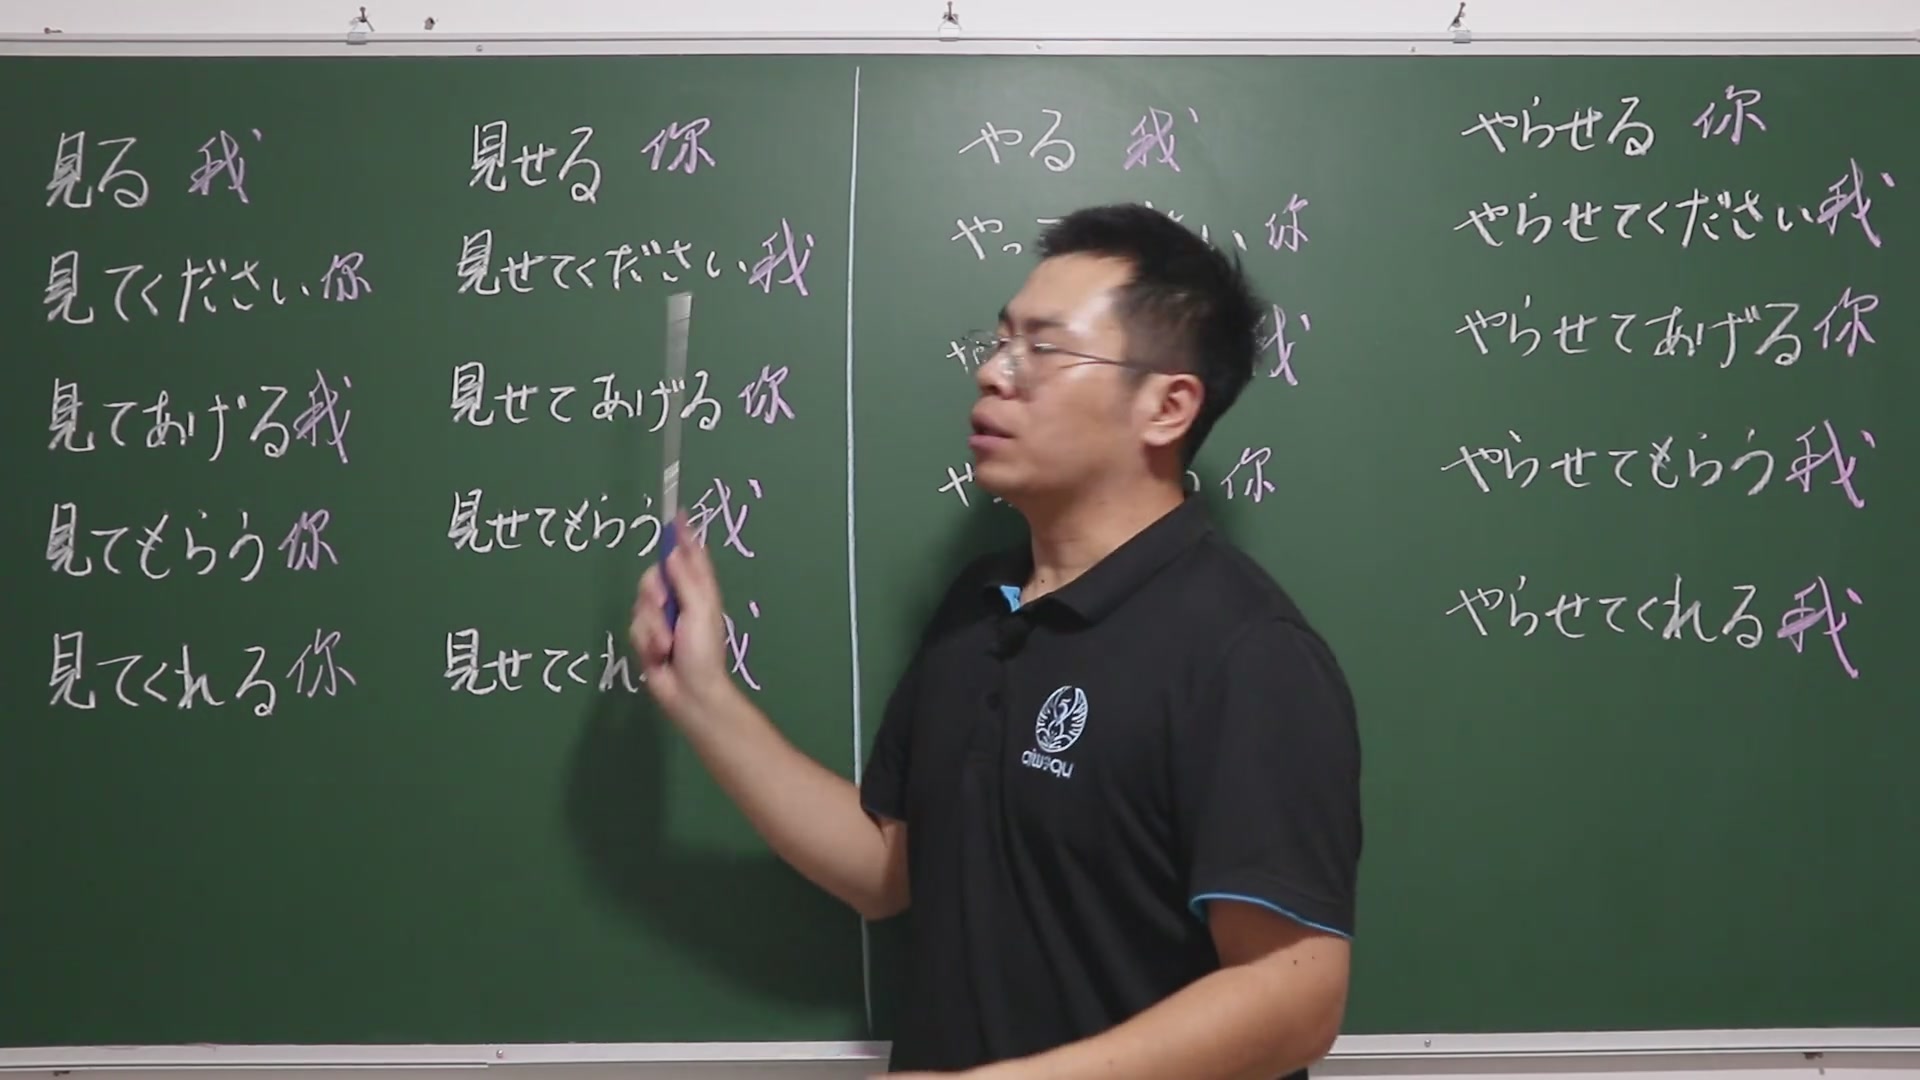 見る 我
見てください 你
見てあげる 我
見てもらう 你
見てくれる 你
見せる 你
見せてください 我
見せてあげる 你
見せてもらう 我
見せてくれ 我
やる 我
やっ い 你
や 我
や 你
やらせる 你
やらせてください 我
やらせてあげる 你
やらせてもらう 我
やらせてくれる 我
aiwaqu